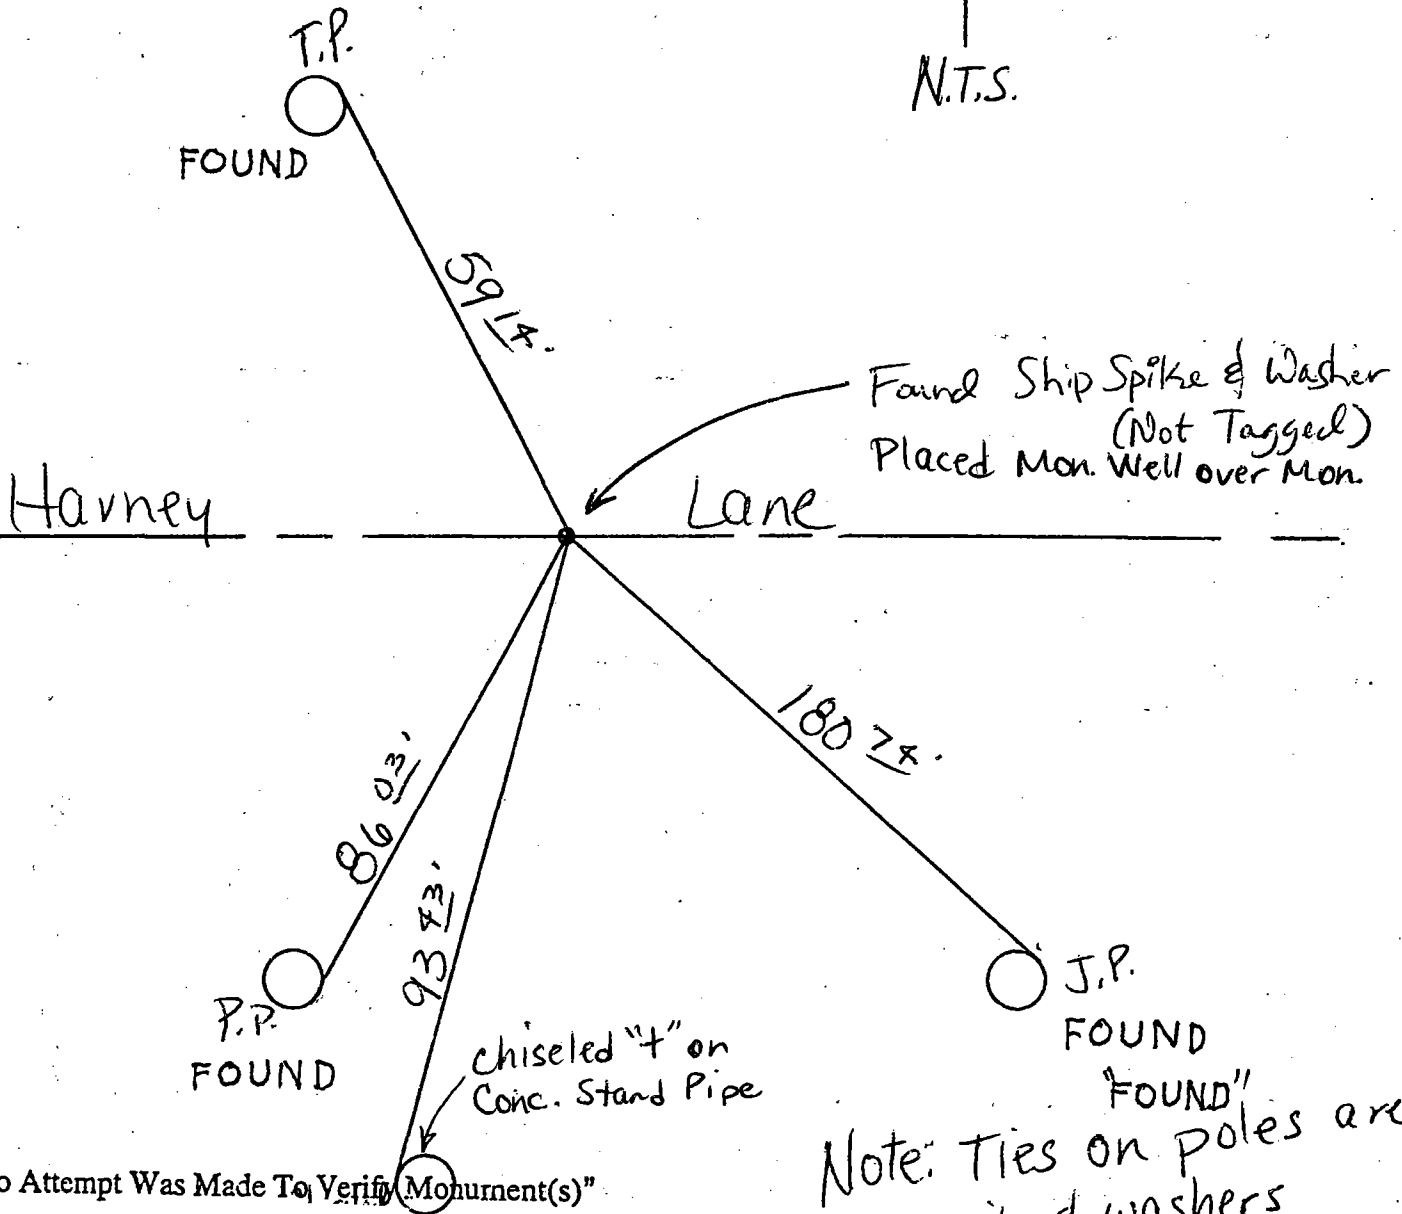 T.P.
N.T.S.
FOUND
59 14'
Found Ship Spike & Washer
(Not Tagged)
Placed Mon. Well over Mon.
Harney Lane
180 74'
86 03'
93 43'
P.P.
FOUND
J.P.
FOUND
"FOUND"
chiseled "+" on
Conc. Stand Pipe
Note: Ties on poles are
washers
Attempt Was Made To Verify Monument(s)"